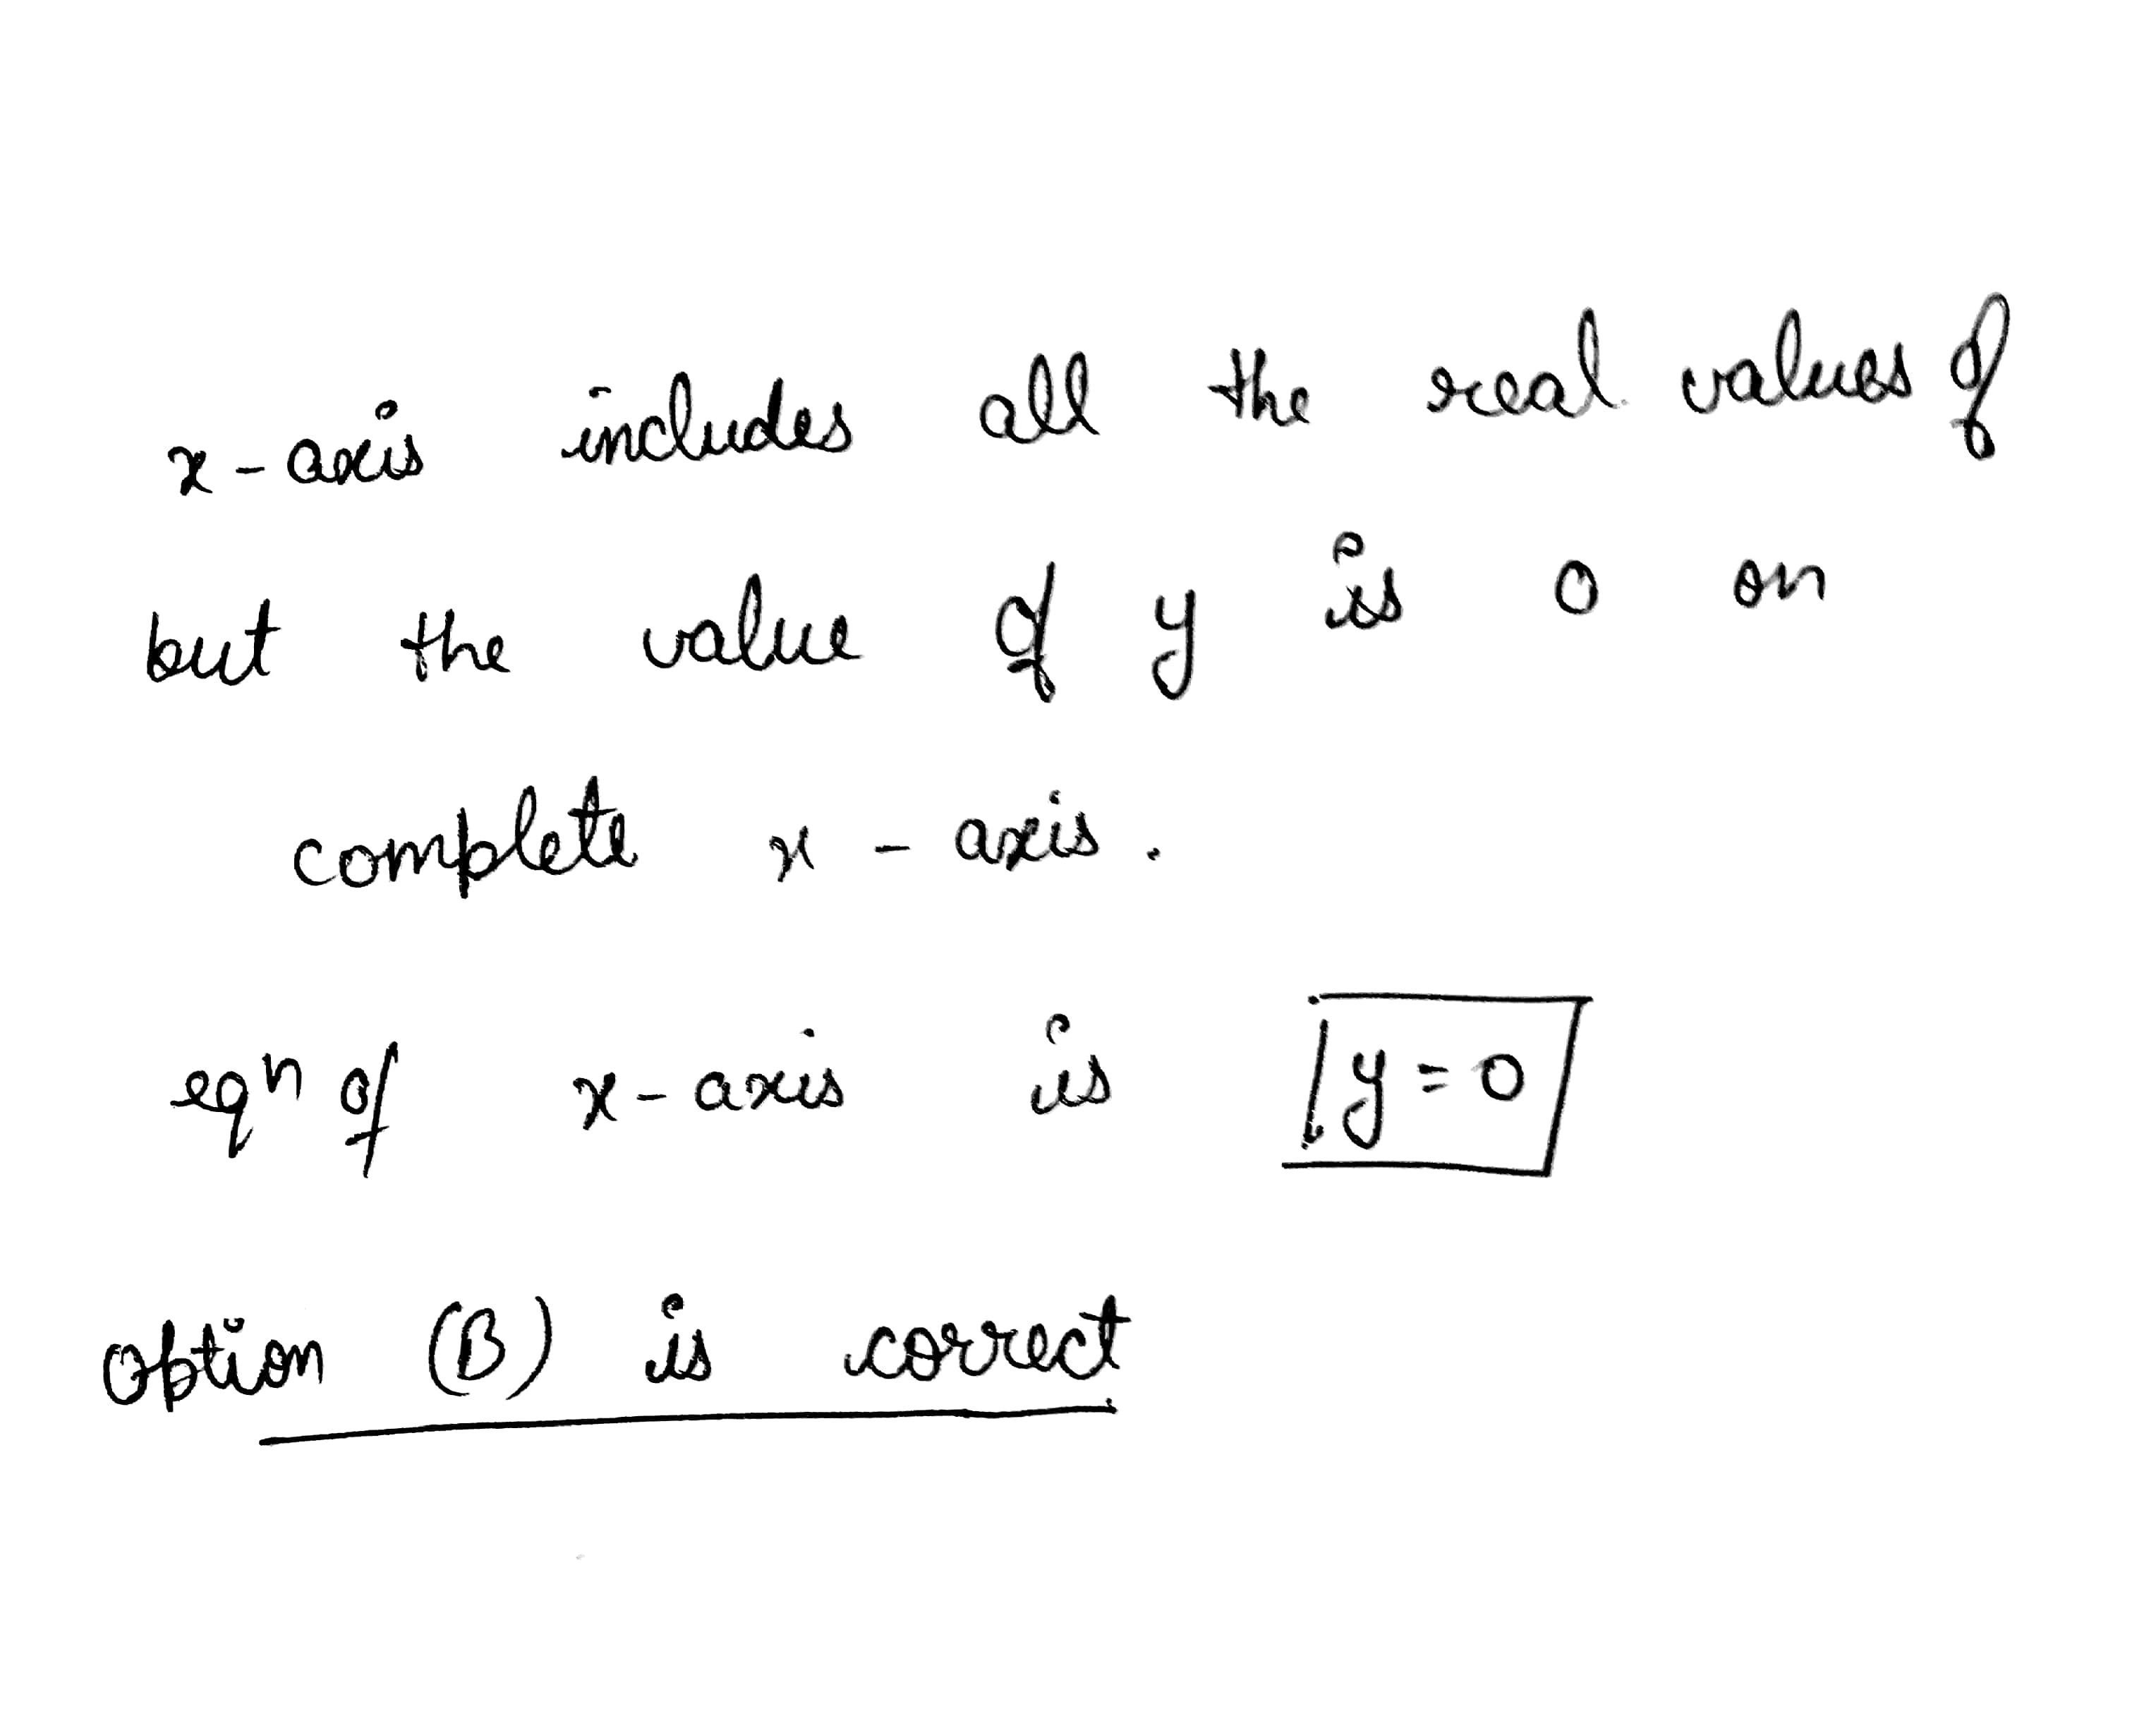 x-axis includes all the real values of
but the value of y is 0 on
complete x - axis.
eqⁿ of x-axis is y = 0
option (B) is correct